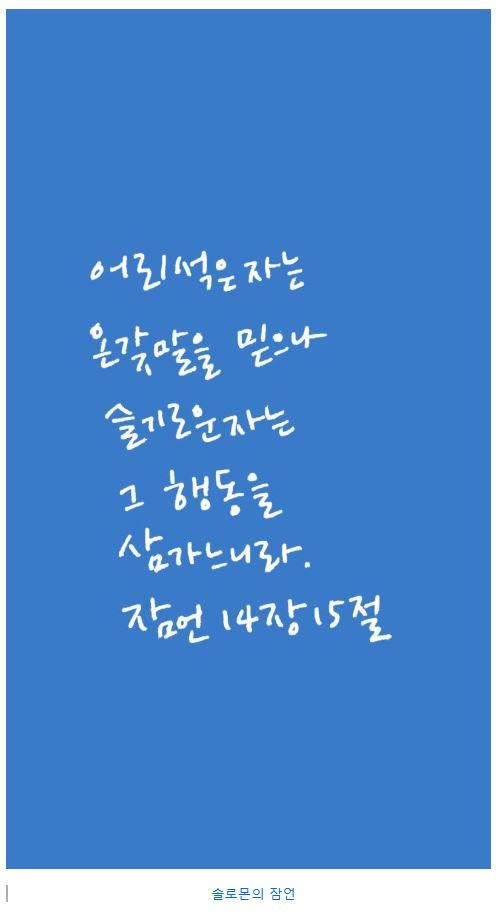 어리석은자는
온갖말을 믿으나
슬기로운자는
그 행동을
삼가느니라.
잠언 14장 15절
솔로몬의 잠언